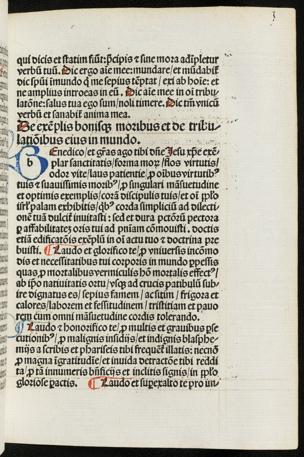 qui dicis et statim fiūt: p̄cipis ⁊ sine mora adīpletur
verbū tuū. Dic ergo aīe mee: mundare/ et mūdabiť
dic spūi īmundo q me sepius tēptat/ exi ab hoīe: et
ne amplius introeas in eū. Dic aīe mee in oī tribu
latiōne: salus tua ego sum/ noli timere. Dic tm̄ vnicū
verbū et sanabiť anima mea.
De exēplis bonisq; moribus et de tribu
latiōibus eius in mundo.
Benedico/ et gr̄as ago tibi dn̄e Jesu xp̄e exē
plar sanctitatis/ forma moꝝ/ flos virtutis/
odor vite/ laus patientie/ ꝓ oībus virtutib⁹
tuis ⁊ suauissimis morib⁹/ ꝓ singulari māsuetudine
et optimis exemplis/ corā discipulis tuis/ et oī pplo
palam exhibitis/ qb⁹ corda simpliciū ad dilecti
onē tuā dulcit̄ inuitasti: sed et dura pctōrū pectora
ꝑ affabilitatē oris tui ad pn̄iam cōmouisti. doctis
etiā edificatōis exēplū in oī actu tuo ⁊ doctrina pre
buisti. ¶ Laudo et glorifico te/ ꝓ vniuersis incōmo
dis et necessitatibus tui corporis in mundo ꝑpessis
quas ꝓ mortalibus vermiculis hō mortalis effect⁹/
ab ip̄o natiuitatis ortu/ vsq; ad crucis patibulū sub
ire dignatus es/ sepius famem/ ac sitim/ frigora et
calores/ laborem et fessitudinem/ tristitiam et pauo
rem cum omni māsuetudine cordis tolerando.
¶ Laudo ⁊ honorifico te/ ꝓ multis et grauibus ꝑse
cutionib⁹/ ꝓ malignis insidijs/ et indignis blasphe
mijs a scribis et phariseis tibi frequēť illatis: necnō
ꝓ magna īgratitudie/ et inuida detractōe tibi reddi
ta/ ꝓ tā innumeris bn̄ficijs et inclitis signis/ in pplo
gloriose ꝑactis. ¶ Laudo et supexalto te pro im⸗